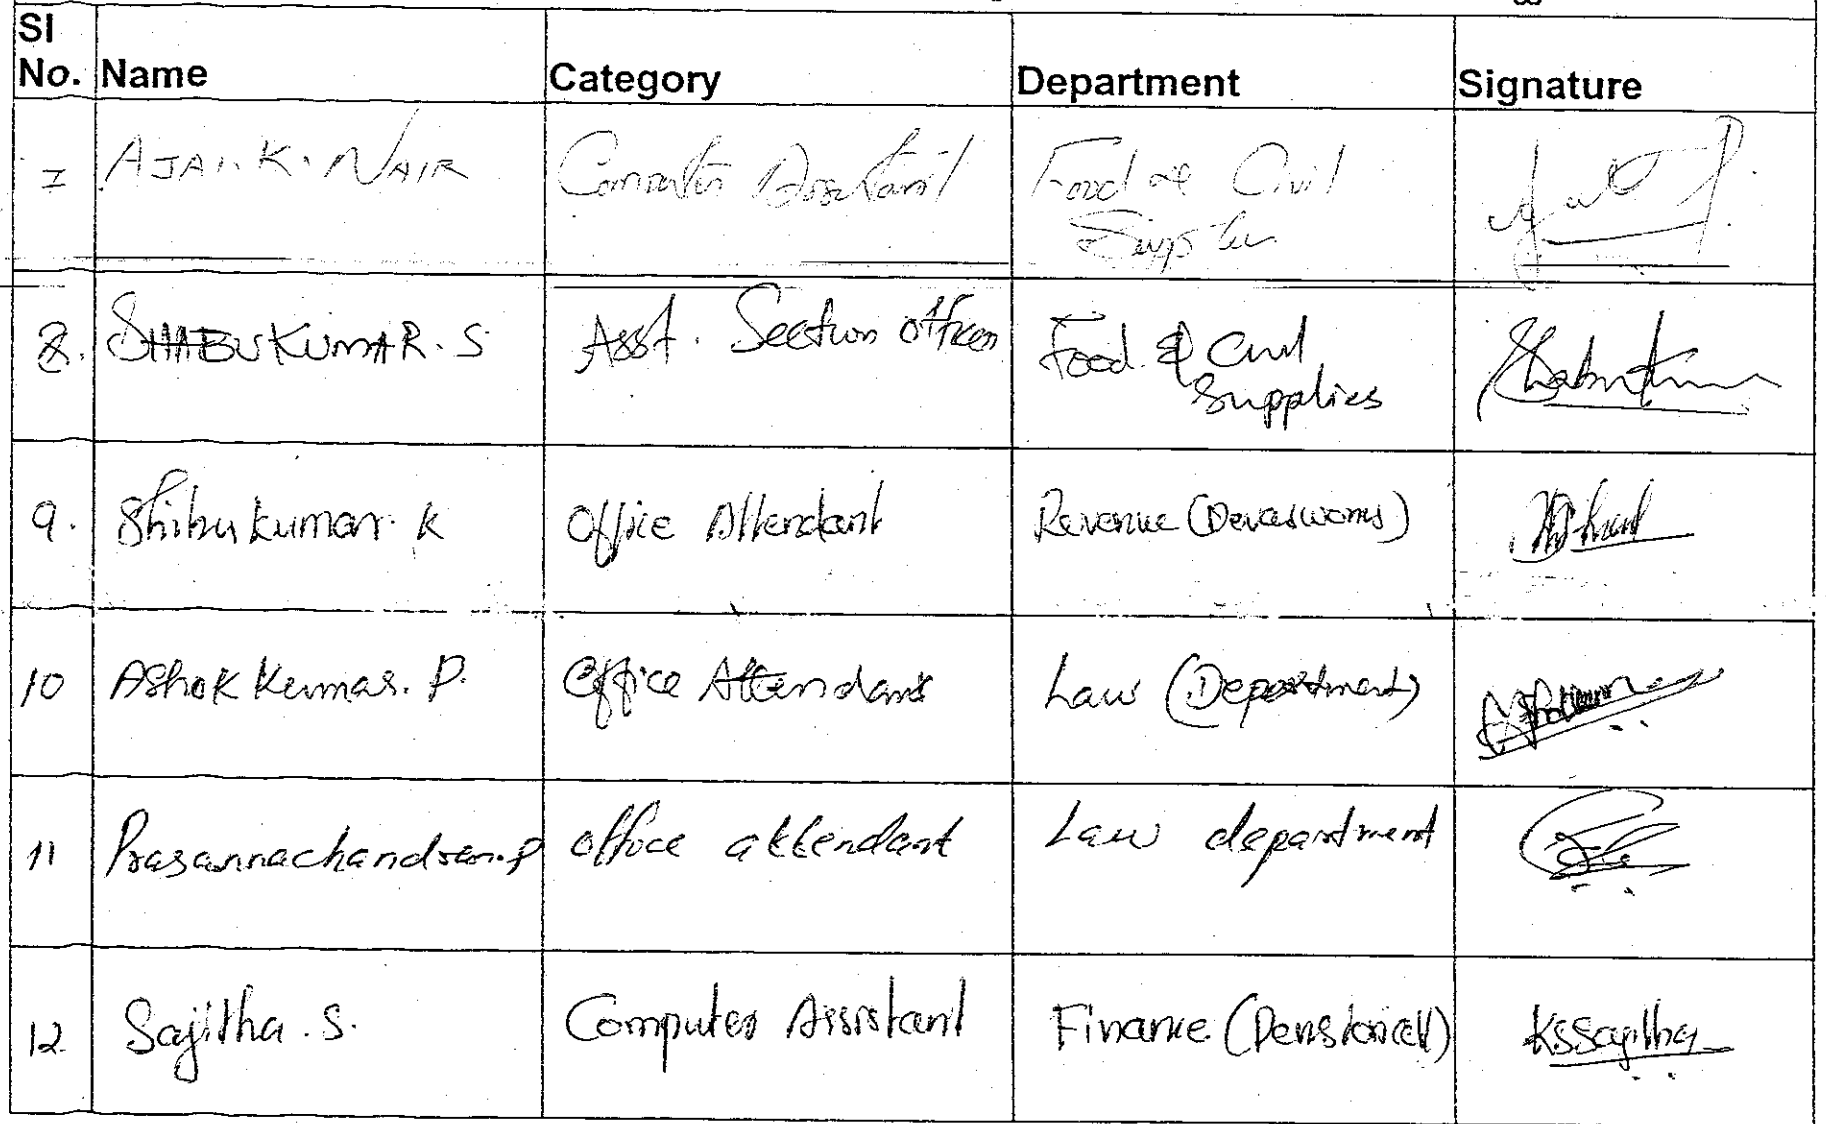 Sl No. Name Category Department Signature
7 AJAI. K. NAIR Computer Assistant Food & Civil
Supplies
8. SHABU KUMAR. S Asst. Section officer Food & Civil
Supplies
9. Shibu kumar. K Office Attendant Revenue (Devaswoms)
10 Ashok Kumar. P. Office Attendant Law (Department)
11 Prasannachandran. P office attendant Law department
12 Sajitha. S. Computer Assistant Finance (Pension cell) KSSajitha